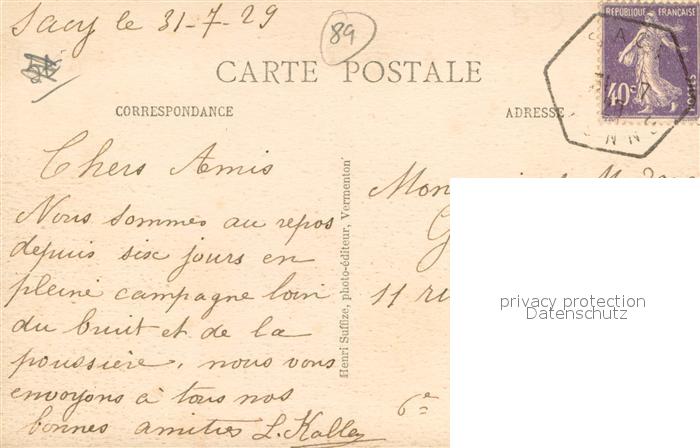 Sacy le 31-7-29
89
CARTE POSTALE
RÉPUBLIQUE FRANÇAISE
40c
SACY
YONNE
CORRESPONDANCE
ADRESSE
Chers Amis
Nous sommes au repos
depuis six jours en
pleine campagne loin
du bruit et de la
poussière, nous vous
envoyons à tous nos
bonnes amitiés L. Kalley
Henri Suffize, photo-éditeur, Vermenton
11 ru
6e
privacy protection
Datenschutz